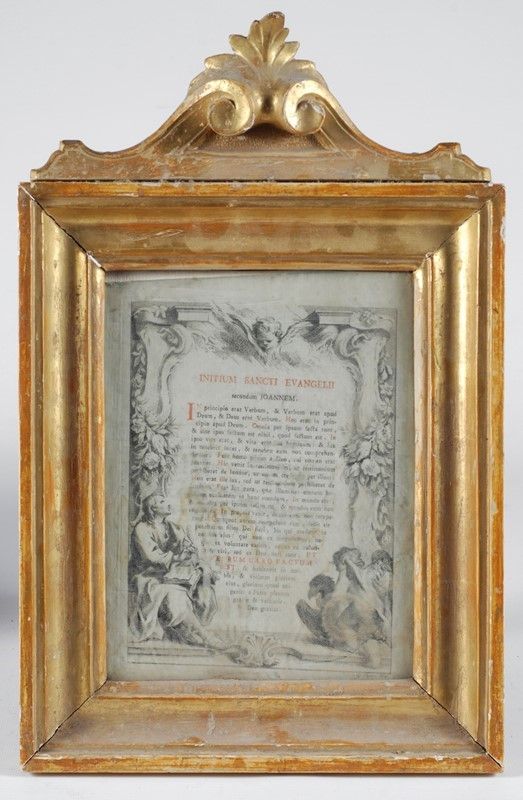 INITIUM SANCTI EVANGELII
secundum JOANNEM.
IN principio erat Verbum, & Verbum erat apud
Deum, & Deus erat Verbum. Hoc erat in prin-
cipio apud Deum. Omnia per ipsum facta sunt,
& sine ipso factum est nihil, quod factum est. In
ipso vita erat, & vita erat lux hominum; & lux
in tenebris lucet, & tenebræ eam non comprehen-
Fuit homo missus a Deo, cui nomen erat
Joannes. Hic venit in testimonium, ut testimonium
perhiberet de lumine, ut omnes crederent per illum.
erat ille lux, sed ut testimonium perhiberet de
lumine. Erat lux vera, quæ illuminat omnem ho-
minem venientem in hunc mundum. In mundo erat,
& mundus per ipsum factus est, & mundus eum non
cognovit. In propria venit, & sui eum non
quot autem receperunt eum, dedit eis
filios Dei fieri, his qui
qui non ex
ex voluntate carnis, neque ex
viri, sed ex Deo nati sunt. ET
VERBUM CARO FACTUM
EST, & habitavit in no-
bis, & vidimus gloriam
ejus, gloriam quasi uni-
geniti a Patre, plenum
gratiæ & veritatis.
Deo gratias.